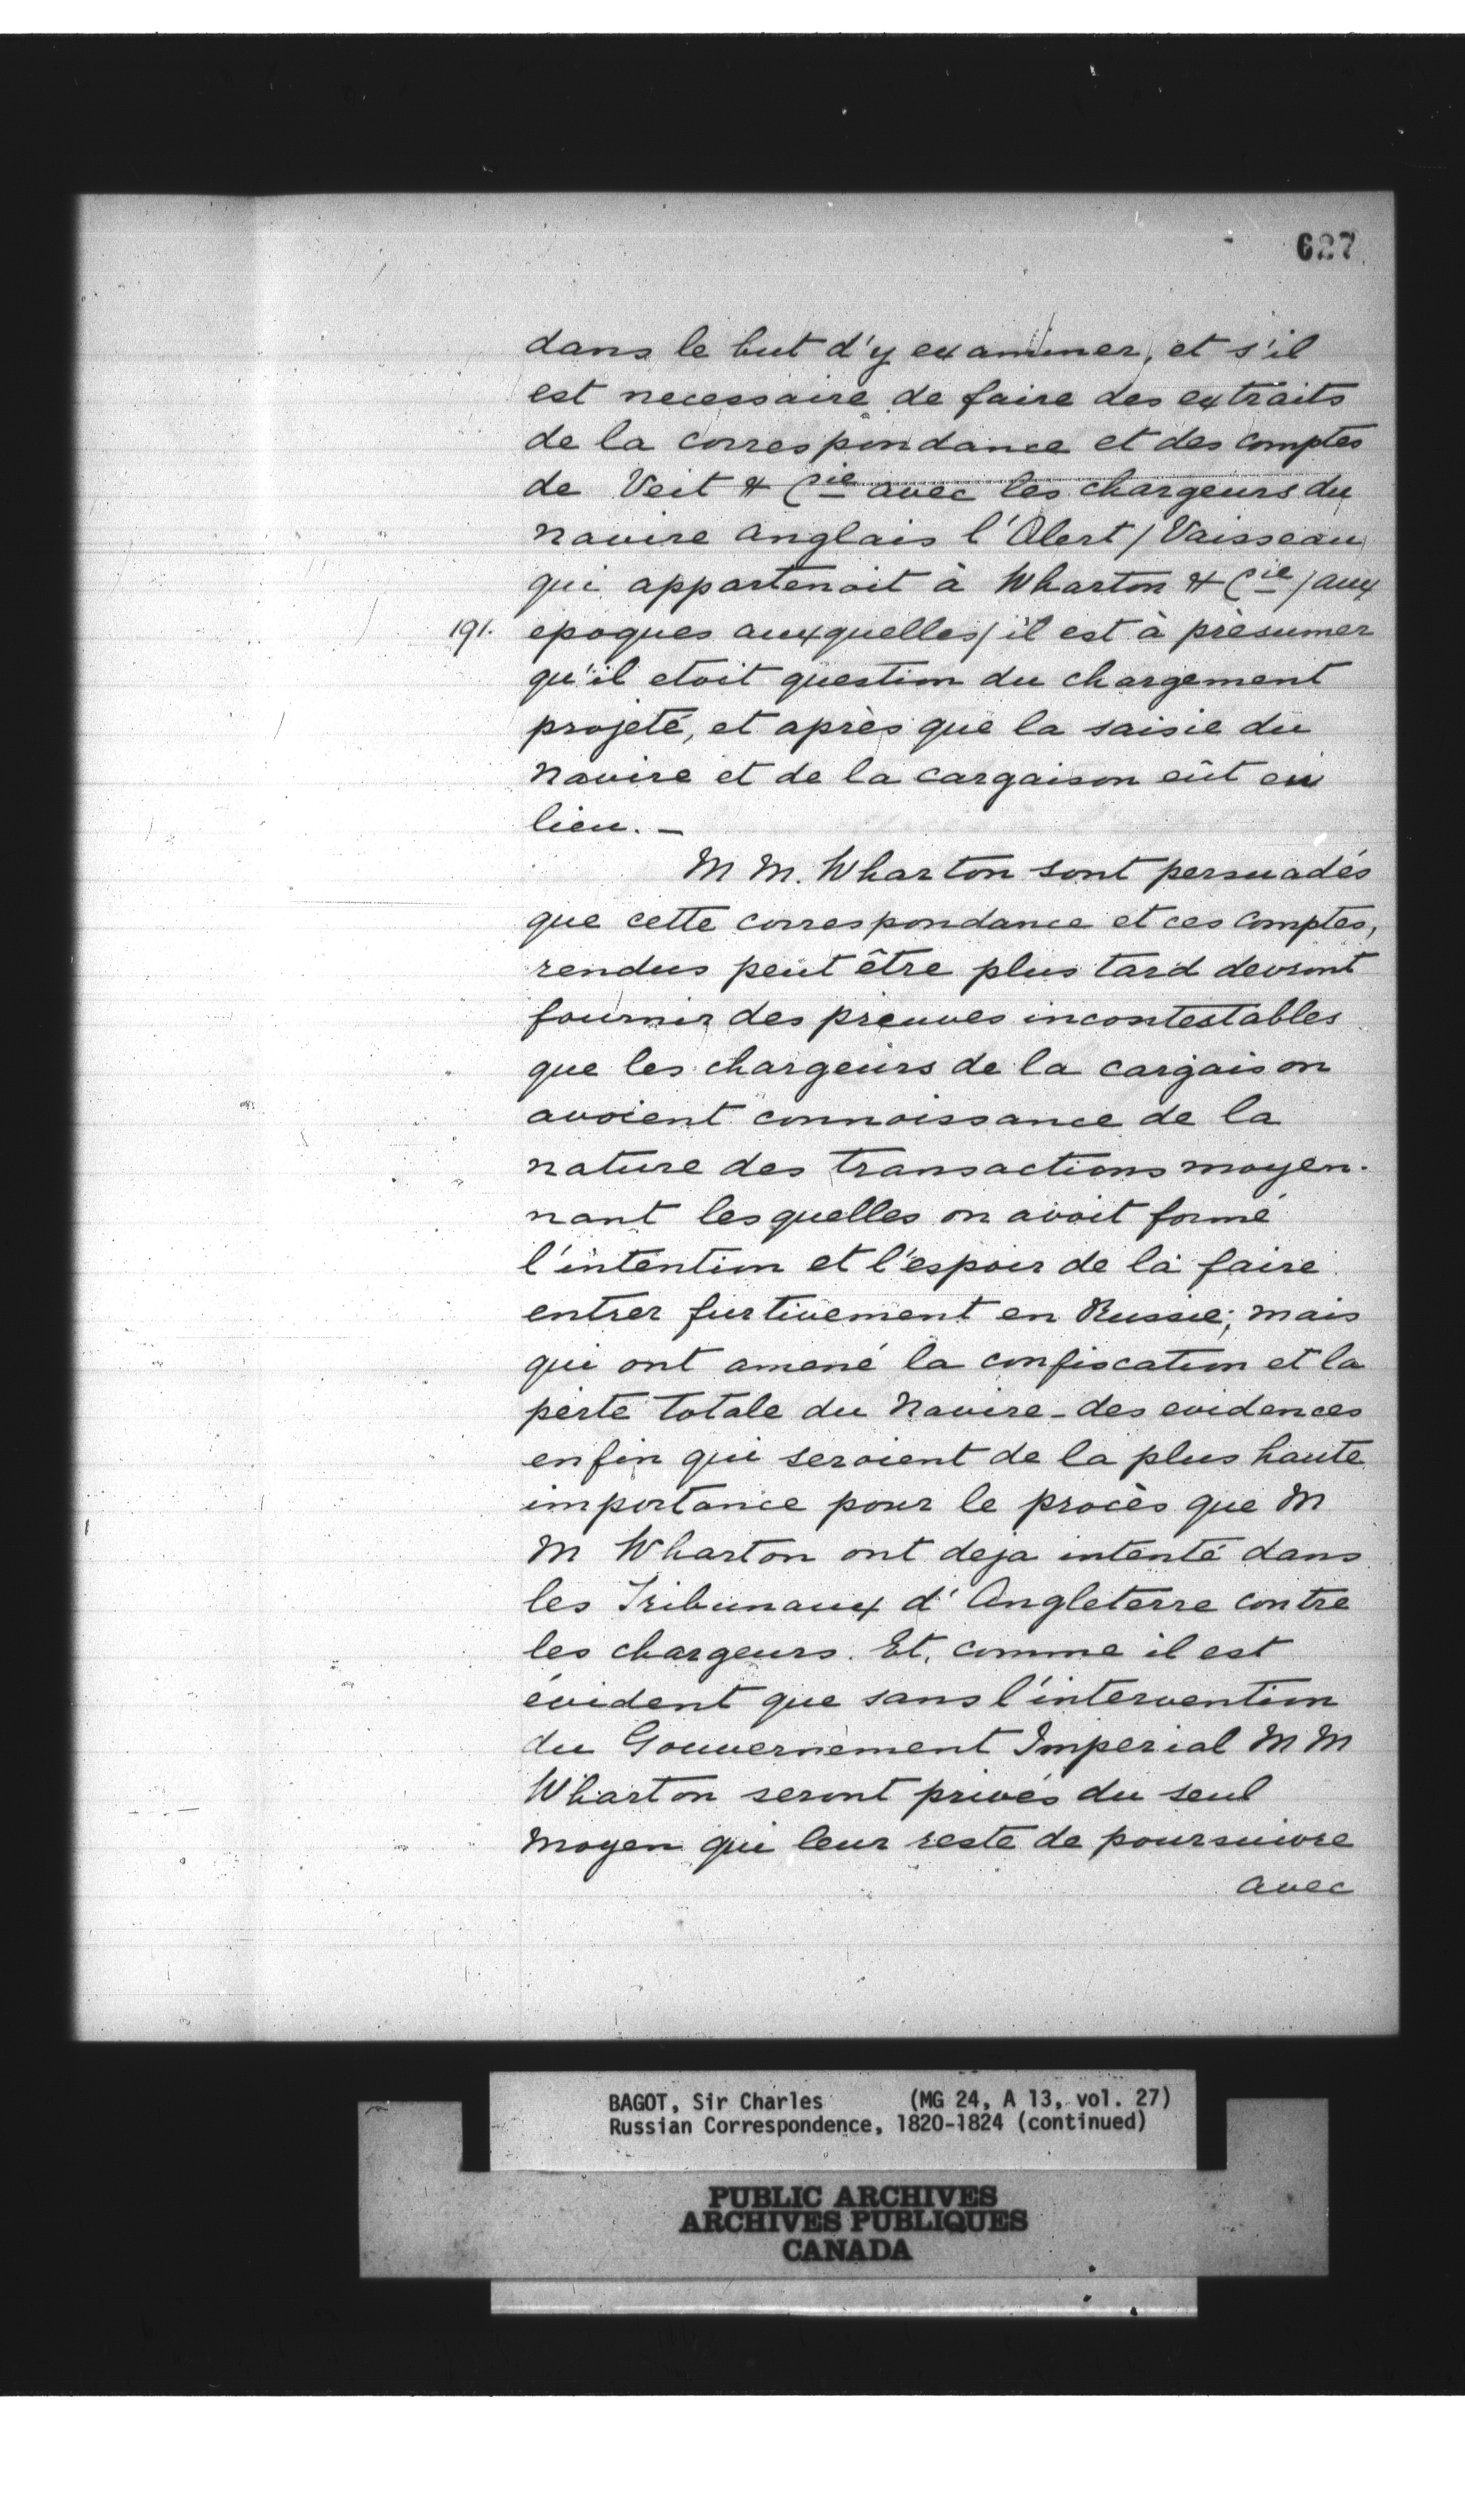 627
dans le but d'y examiner, et s'il
est necessaire de faire des extraits
de la correspondance et des comptes
de Veit & Cie avec les chargeurs du
navire anglais l'Alert / Vaisseau
qui appartenoit à Wharton & Cie / aux
191. epoques auxquelles / il est à présumer
qu'il etoit question du chargement
projeté, et après que la saisie du
navire et de la cargaison eût eu
lieu. —
M M. Wharton sont persuadés
que cette correspondance et ces comptes,
rendus peut être plus tard devront
fournir des preuves incontestables
que les chargeurs de la cargaison
avoient connoissance de la
nature des transactions moyen-
nant lesquelles on avoit formé
l'intention et l'espoir de la faire
entrer furtivement en Russie; mais
qui ont amené la confiscation et la
perte totale du navire - des evidences
enfin qui seroient de la plus haute
importance pour le procès que M
M Wharton ont deja intenté dans
les Tribunaux d'Angleterre contre
les chargeurs. Et, comme il est
évident que sans l'intervention
du Gouvernement Imperial M M
Wharton seront privés du seul
moyen qui leur reste de poursuivre
avec
BAGOT, Sir Charles (MG 24, A 13, vol. 27)
Russian Correspondence, 1820-1824 (continued)
PUBLIC ARCHIVES
ARCHIVES PUBLIQUES
CANADA